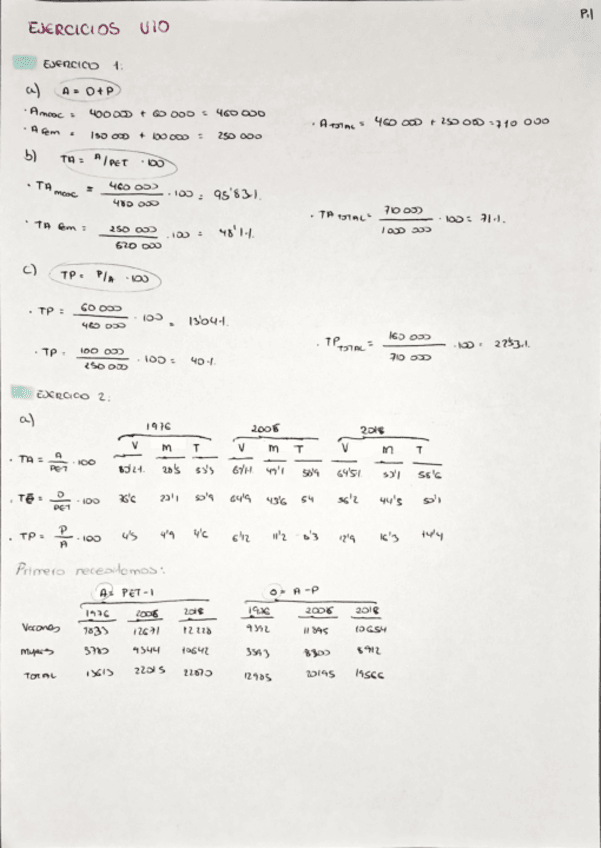 P.1
EJERCICIOS U10
EJERCICIO 1:
a) A = O+P
· A masc = 400 000 + 60 000 = 460 000
· A fem = 150 000 + 100 000 = 250 000
· A TOTAL = 460 000 + 250 000 = 710 000
b) TA = A/PET · 100
· TA masc = 460 000 / 480 000 · 100 = 95'83%
· TA fem = 250 000 / 520 000 · 100 = 48'1%
· TA TOTAL = 710 000 / 1000 000 · 100 = 71%
c) TP = P/A · 100
· TP = 60 000 / 460 000 · 100 = 13'04%
· TP = 100 000 / 250 000 · 100 = 40%
· TP TOTAL = 160 000 / 710 000 · 100 = 22'53%
EJERCICIO 2:
a)
1976 2008 2018
V M T V M T V M T
· TA = A/PET · 100 53'3 49'1 64'5% 53'1 58'6
· TE = O/PET · 100 50'9 64'9 43'6 54 56'2 44'5 50'1
· TP = P/A · 100 4'5 4'9 4'6 6'12 11'2 12'9 16'3 14'4
Primero necesitamos:
A = PET-I O = A-P
1976 2008 2018 1976 2008 2018
Varones 12671 12228 9392 11895 10654
Mujeres 3780 9344 10642 3593 8300 8912
TOTAL 13613 22015 22870 12985 20195 19566